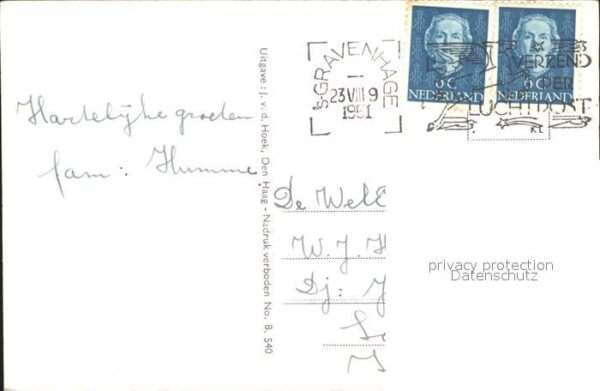 Hartelijke groeten
fam: Humme
Uitgave: J. v. d. Hoek, Den Haag - Nadruk verboden No. B. 540
'SGRAVENHAGE
23 VIII 9
1951
6 C
NEDERLAND
6 C
NEDERLAND
VERZEND
PER
LUCHTPOST
De Wel
W. J. H
Dj:
privacy protection
Datenschutz